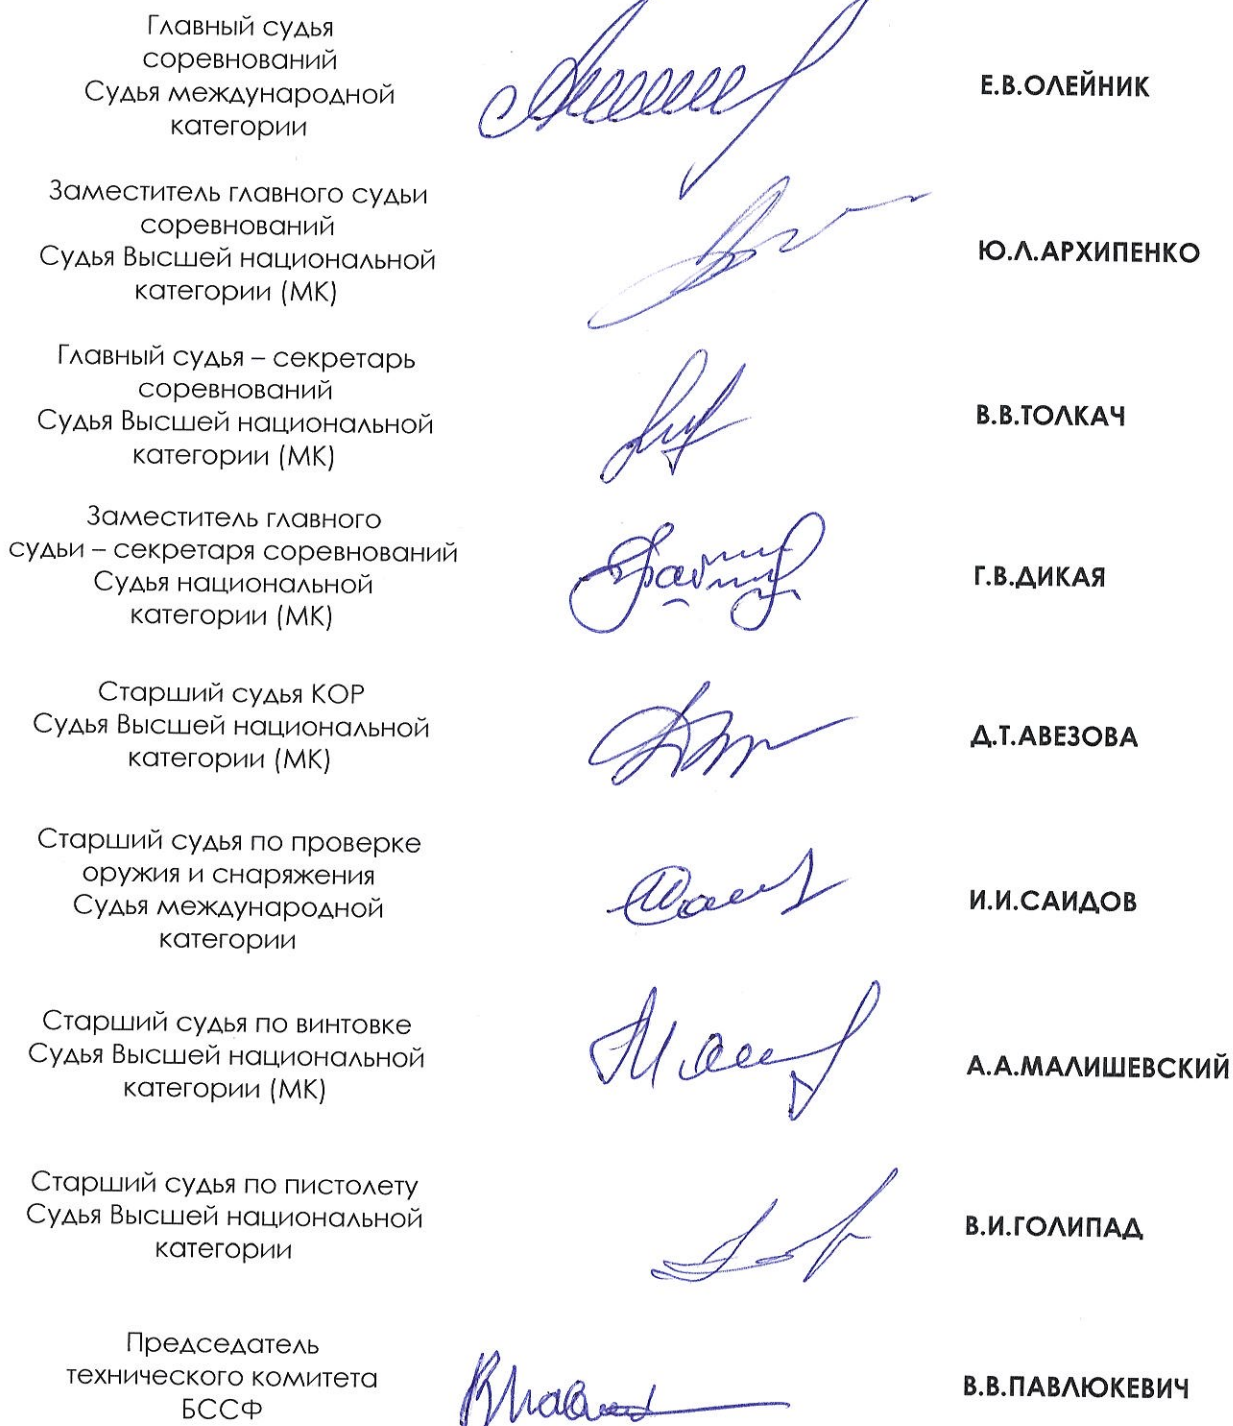 Главный судья
соревнований
Судья международной
категории
Е.В.ОЛЕЙНИК
Заместитель главного судьи
соревнований
Судья Высшей национальной
категории (МК)
Ю.Л.АРХИПЕНКО
Главный судья – секретарь
соревнований
Судья Высшей национальной
категории (МК)
В.В.ТОЛКАЧ
Заместитель главного
судьи – секретаря соревнований
Судья национальной
категории (МК)
Г.В.ДИКАЯ
Старший судья КОР
Судья Высшей национальной
категории (МК)
Д.Т.АВЕЗОВА
Старший судья по проверке
оружия и снаряжения
Судья международной
категории
И.И.САИДОВ
Старший судья по винтовке
Судья Высшей национальной
категории (МК)
А.А.МАЛИШЕВСКИЙ
Старший судья по пистолету
Судья Высшей национальной
категории
В.И.ГОЛИПАД
Председатель
технического комитета
БССФ
В.В.ПАВЛЮКЕВИЧ